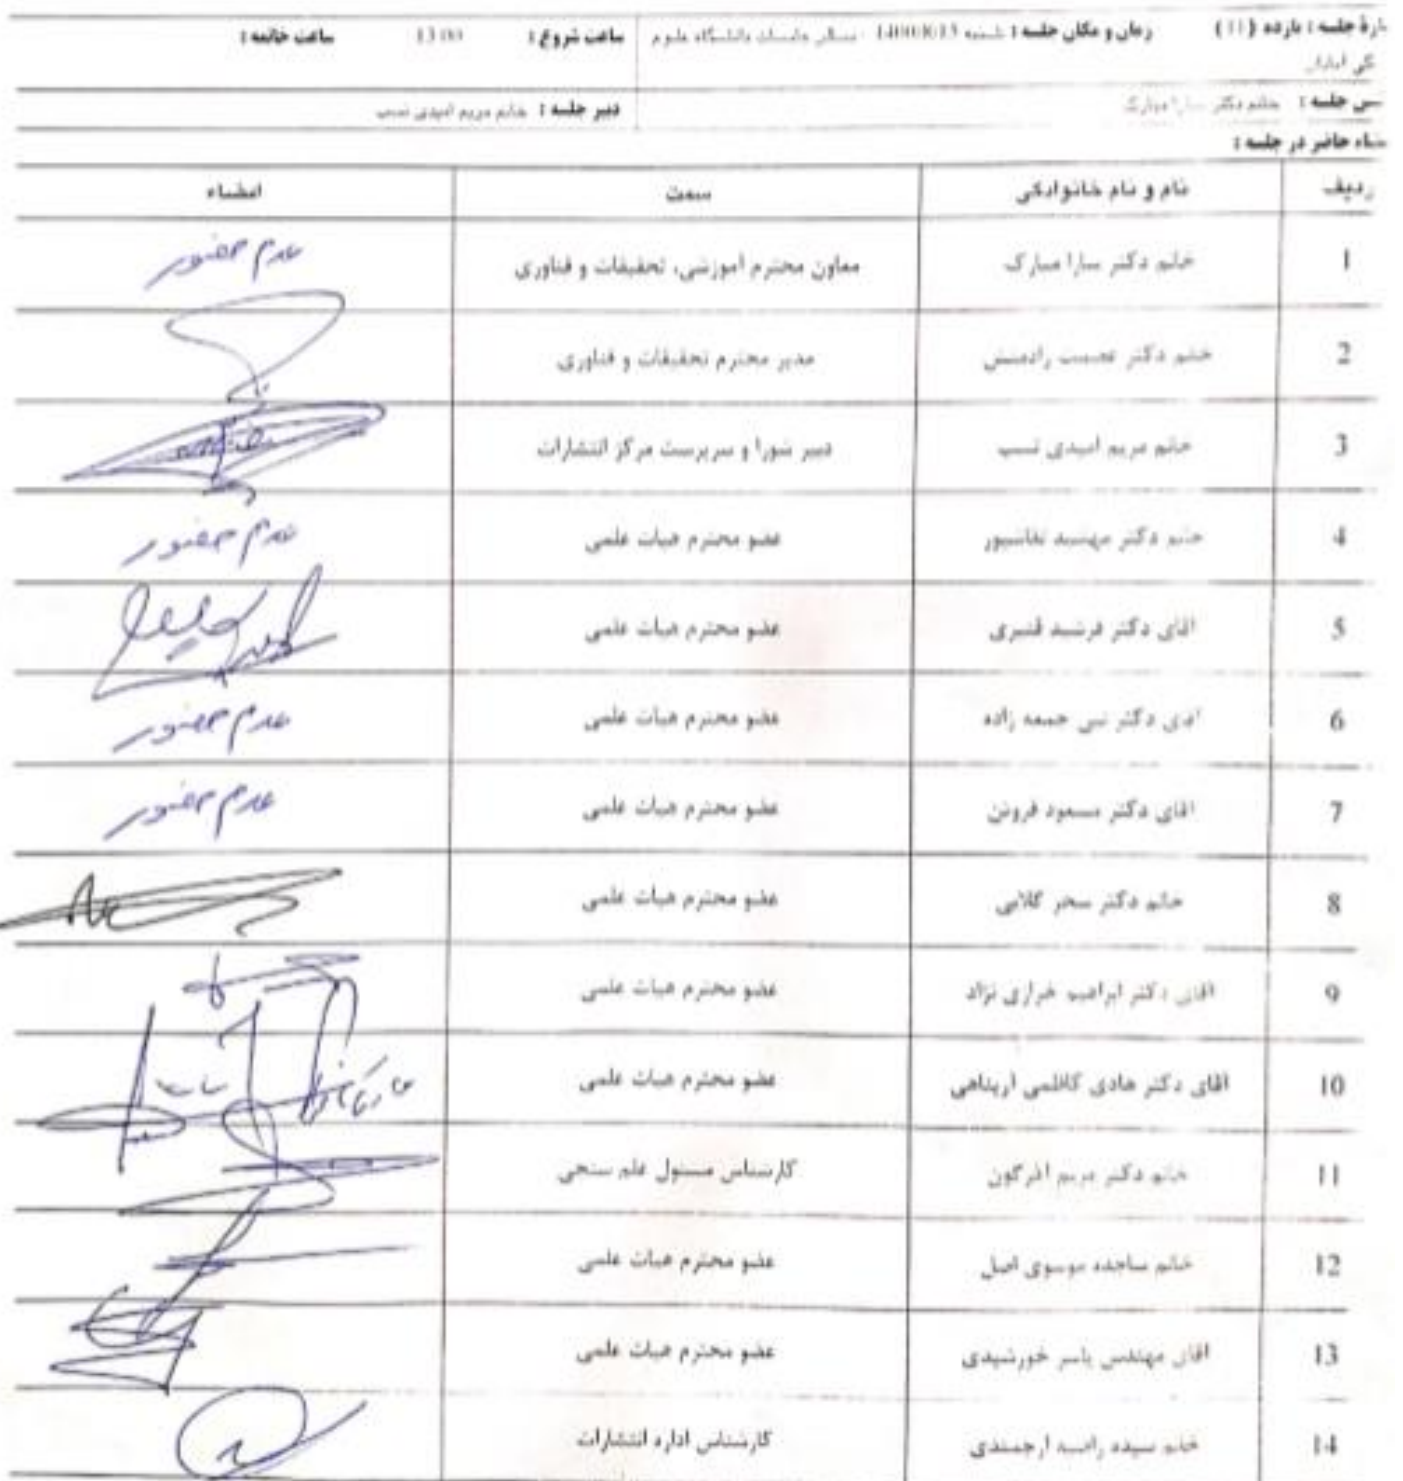 ارۀ جلسه : یازده (11) زمان و مکان جلسه : شنبه سالن جلسات دانشگاه علوم ساعت شروع : 13:00 ساعت خاتمه :
جلسه : خانم دکتر سارا مبارک دبیر جلسه : خانم مریم امیدی نسب
حاضر در جلسه :
ردیف نام و نام خانوادگی سمت امضاء
1 خانم دکتر سارا مبارک معاون محترم آموزشی، تحقیقات و فناوری عدم حضور
2 خانم دکتر عصمت رادمنش مدیر محترم تحقیقات و فناوری
3 خانم مریم امیدی نسب دبیر شورا و سرپرست مرکز انتشارات
4 خانم دکتر مهشید نقاشپور عضو محترم هیات علمی عدم حضور
5 اقای دکتر فرشید قنبری عضو محترم هیات علمی
6 اقای دکتر نبی جمعه زاده عضو محترم هیات علمی عدم حضور
7 اقای دکتر مسعود فروتن عضو محترم هیات علمی عدم حضور
8 خانم دکتر سحر گلابی عضو محترم هیات علمی
9 اقای دکتر ابراهیم خرازی نژاد عضو محترم هیات علمی
10 اقای دکتر هادی کاظمی اریناهی عضو محترم هیات علمی
11 خانم دکتر مریم آذرگون کارشناس مسئول علم سنجی
12 خانم ساجده موسوی اصل عضو محترم هیات علمی
13 اقای مهندس یاسر خورشیدی عضو محترم هیات علمی
14 خانم سیده راضیه ارجمندی کارشناس اداره انتشارات